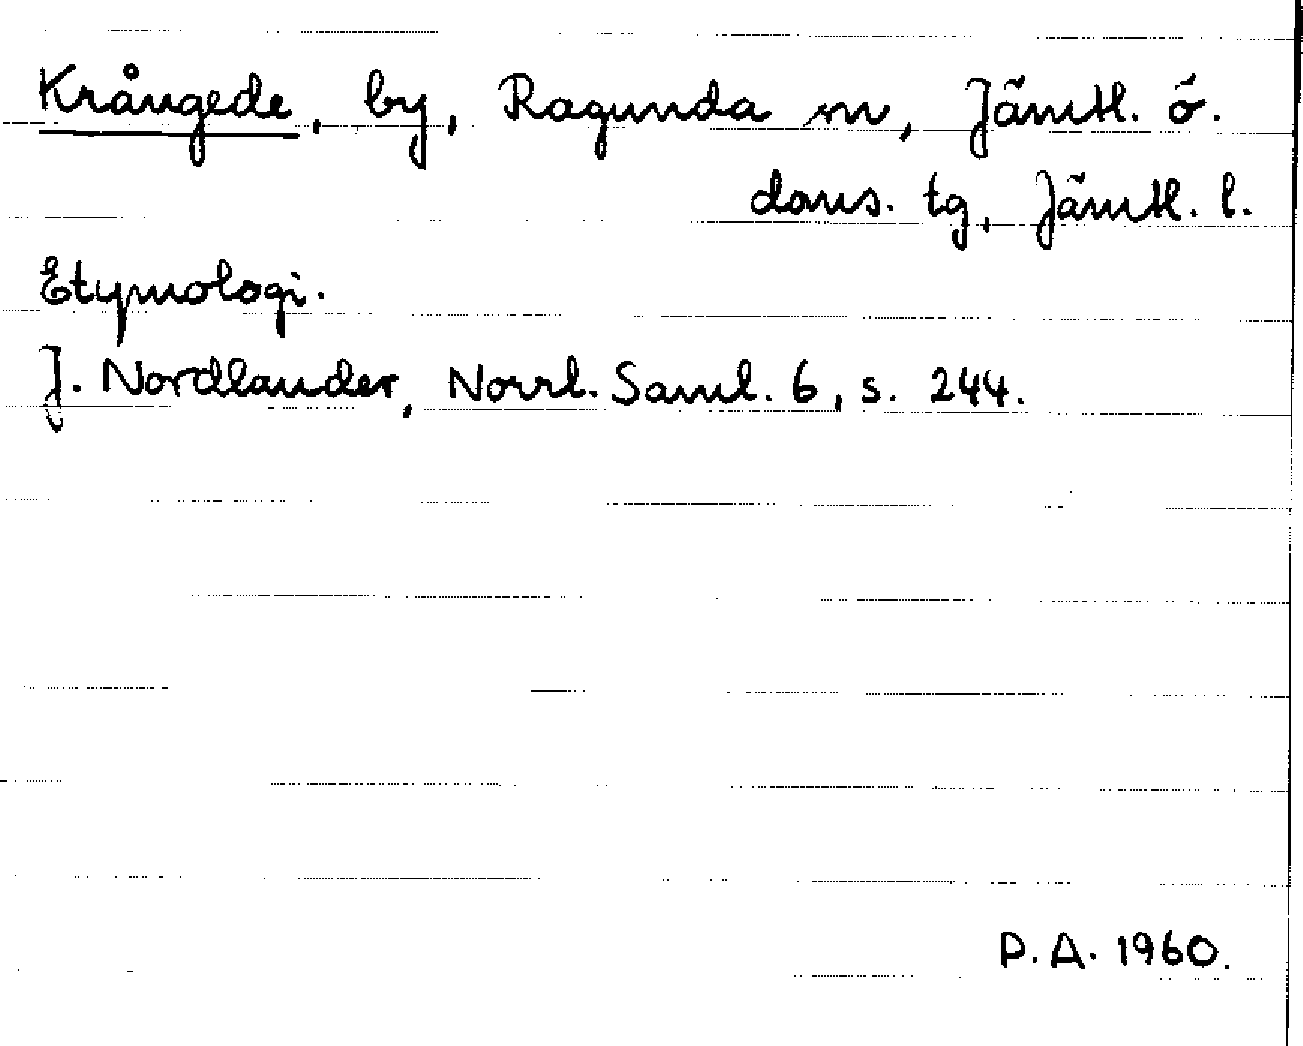 Krångede, by, Ragunda sn, Jämtl. ö.
doms. tg, Jämtl. l.
Etymologi.
J. Nordlander, Norrl. Saml. 6, s. 244.
P.A. 1960.